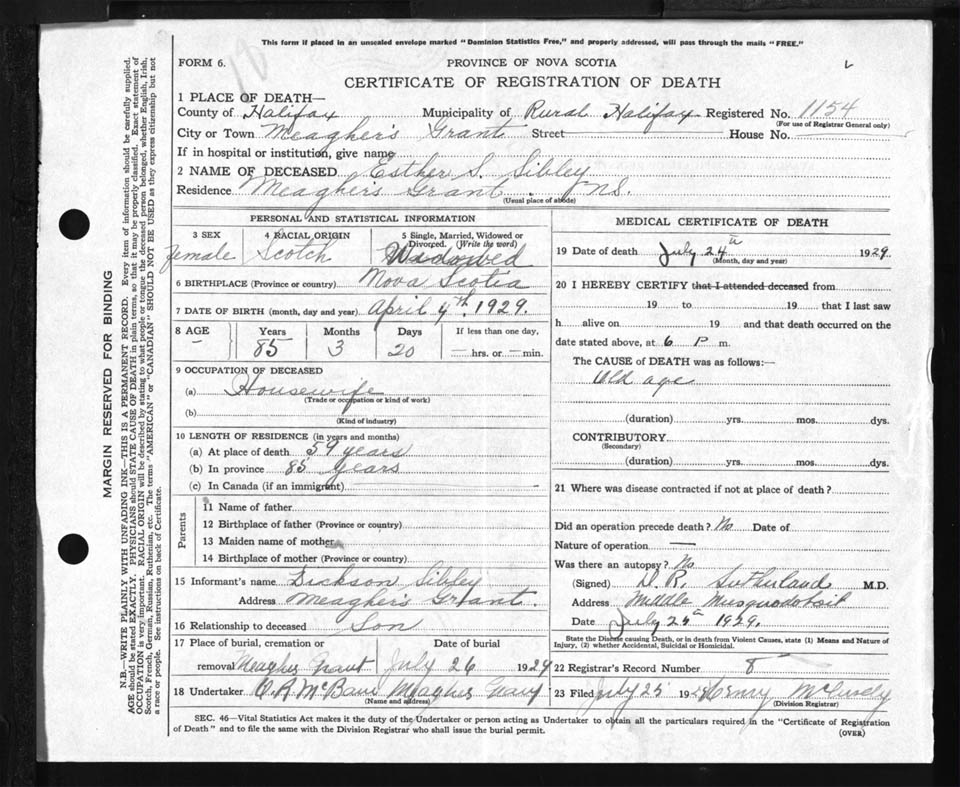 This form if placed in an unsealed envelope marked "Dominion Statistics Free," and properly addressed, will pass through the mails "FREE."
FORM 6.
PROVINCE OF NOVA SCOTIA
CERTIFICATE OF REGISTRATION OF DEATH
1 PLACE OF DEATH—
County of Halifax Municipality of Rural Halifax Registered No. 1154
(For use of Registrar General only)
City or Town Meagher's Grant Street House No.
If in hospital or institution, give name
2 NAME OF DECEASED Esther S. Sibley
Residence Meagher's Grant. N.S.
(Usual place of abode)
PERSONAL AND STATISTICAL INFORMATION
3 SEX 4 RACIAL ORIGIN 5 Single, Married, Widowed or Divorced. (Write the word)
Female Scotch Widowed
6 BIRTHPLACE (Province or country) Nova Scotia
7 DATE OF BIRTH (month, day and year) April 4th. 1929.
8 AGE Years Months Days If less than one day,
— 85 3 20 — hrs. or — min.
9 OCCUPATION OF DECEASED
(a) Housewife
(Trade or occupation or kind of work)
(b)
(Kind of industry)
10 LENGTH OF RESIDENCE (in years and months)
(a) At place of death 59 years
(b) In province 85 years
(c) In Canada (if an immigrant)
Parents
11 Name of father
12 Birthplace of father (Province or country)
13 Maiden name of mother
14 Birthplace of mother (Province or country)
15 Informant's name Dickson Sibley
Address Meagher's Grant.
16 Relationship to deceased Son
17 Place of burial, cremation or removal Meagher Grant Date of burial July 26 1929
18 Undertaker Meagher Grant
(Name and address)
MEDICAL CERTIFICATE OF DEATH
19 Date of death July 24th 1929.
(Month, day and year)
20 I HEREBY CERTIFY that I attended deceased from
19 to 19 that I last saw
h alive on 19 and that death occurred on
date stated above, at 6 P m.
The CAUSE of DEATH was as follows:—
Old age
(duration) yrs. mos. dys.
CONTRIBUTORY
(Secondary)
(duration) yrs. mos. dys.
21 Where was disease contracted if not at place of death?
Did an operation precede death? No Date of
Nature of operation —
Was there an autopsy? No
(Signed) D. R. Sutherland M.D.
Address Middle Musquodoboit
Date July 25th 1929.
State the Disease causing Death, or in death from Violent Causes, state (1) Means and Nature of
Injury, (2) whether Accidental, Suicidal or Homicidal.
22 Registrar's Record Number 8
23 Filed July 25 19 Henry
(Division Registrar)
SEC. 46—Vital Statistics Act makes it the duty of the Undertaker or person acting as Undertaker to obtain all the particulars required in the "Certificate of Registration
of Death" and to file the same with the Division Registrar who shall issue the burial permit.
(OVER)
MARGIN RESERVED FOR BINDING
N.B.—WRITE PLAINLY WITH UNFADING INK—THIS IS A PERMANENT RECORD. Every item of information should be carefully supplied.
AGE should be stated EXACTLY. PHYSICIANS should STATE CAUSE OF DEATH in plain terms, so that it may be properly classified. Exact statement of
OCCUPATION is very important. RACIAL ORIGIN will be described by stating to what people or tongue the deceased person belonged, whether English, Irish,
Scotch, French, German, Russian, Ruthenian, etc. The terms "AMERICAN" or "CANADIAN" SHOULD NOT BE USED as they express citizenship but not
a race or people. See instructions on back of Certificate.